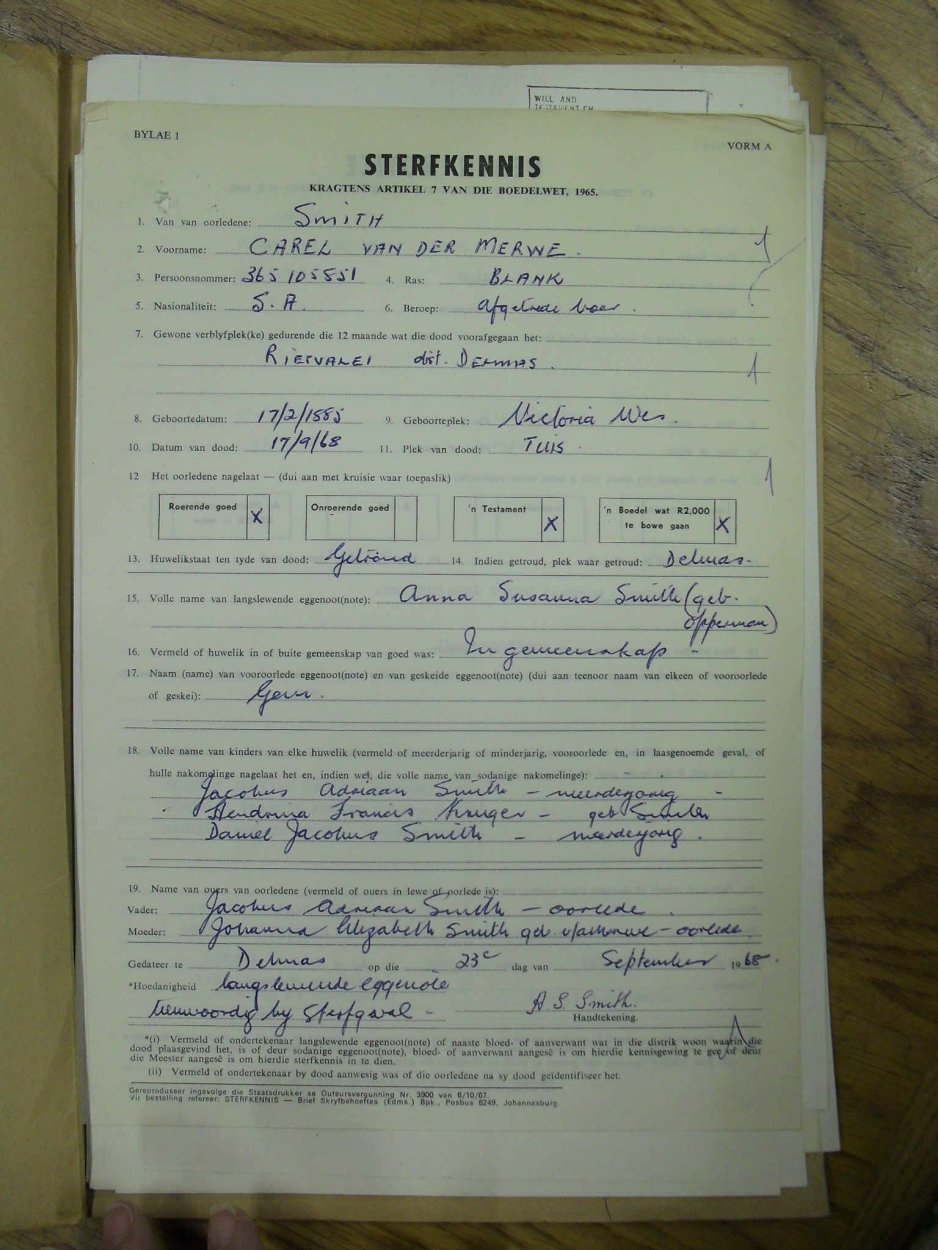 WILL AND
TESTAMENT EN
BYLAE 1
VORM A
STERFKENNIS
KRAGTENS ARTIKEL 7 VAN DIE BOEDELWET, 1965.
1. Van van oorledene: SMITH
2. Voorname: CAREL VAN DER MERWE.
3. Persoonsnommer: 365105851 4. Ras: BLANK
5. Nasionaliteit: S.A. 6. Beroep: afgetrede boer.
7. Gewone verblyfplek(ke) gedurende die 12 maande wat die dood voorafgegaan het:
RIETVALEI dist. DELMAS.
8. Geboortedatum: 17/2/1885 9. Geboorteplek: Victoria Wes.
10. Datum van dood: 17/9/68 11. Plek van dood: TUIS
12 Het oorledene nagelaat — (dui aan met kruisie waar toepaslik)
Roerende goed X Onroerende goed 'n Testament X 'n Boedel wat R2,000 te bowe gaan X
13. Huwelikstaat ten tyde van dood: Getroud 14. Indien getroud, plek waar getroud: Delmas.
15. Volle name van langslewende eggenoot(note): Anna Susanna Smith (geb.
Opperman)
16. Vermeld of huwelik in of buite gemeenskap van goed was: In gemeenskap -
17. Naam (name) van vooroorlede eggenoot(note) en van geskeide eggenoot(note) (dui aan teenoor naam van elkeen of vooroorlede
of geskei): Geen.
18. Volle name van kinders van elke huwelik (vermeld of meerderjarig of minderjarig, vooroorlede en, in laasgenoemde geval, of
hulle nakomelinge nagelaat het en, indien wel, die volle name van sodanige nakomelinge):
Jacobus Adriaan Smith - meerderjarig -
Hendrina Francis Kruger - geb Smith
Daniel Jacobus Smith - meerderjarig.
19. Name van ouers van oorledene (vermeld of ouers in lewe of oorlede is):
Vader: Jacobus Adriaan Smith - oorlede.
Moeder: Johanna Elizabeth Smith geb. v/d Merwe - oorlede.
Gedateer te Delmas op die 23e dag van September 1968.
*Hoedanigheid langslewende eggenote
teenwoordig by sterfgeval - A. S. Smith.
Handtekening.
*(i) Vermeld of ondertekenaar langslewende eggenoot(note) of naaste bloed- of aanverwant wat in die distrik woon waarin die
dood plaasgevind het, is of deur sodanige eggenoot(note), bloed- of aanverwant aangesê is om hierdie kennisgewing te gee of deur
die Meester aangesê is om hierdie sterfkennis in te dien.
(ii) Vermeld of ondertekenaar by dood aanwesig was of die oorledene na sy dood geïdentifiseer het.
Gereproduseer ingevolge die Staatsdrukker se Outeursvergunning Nr. 3900 van 6/10/67.
Vir bestelling refereer: STERFKENNIS — Brief Skryfbehoeftes (Edms.) Bpk., Posbus 6249, Johannesburg